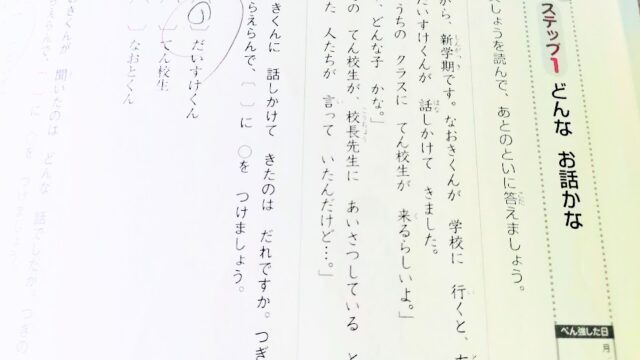 ステップ1 どんな お話かな
べん強した日 月
しょうを読んで、あとのといに答えましょう。
から、新学期です。なおきくんが 学校に 行くと、
だいすけくんが 話しかけて きました。
うちの クラスに てん校生が 来るらしいよ。」
、どんな子 かな。」
の てん校生が、校長先生に あいさつしている と
た 人たちが 言って いたんだけど…。」
きくんに 話しかけて きたのは だれですか。つぎ
らえらんで、〔 〕に ○を つけましょう。
〕だいすけくん
〕てん校生
〕なおとくん
きくんが 聞いたのは どんな 話でしたか。つぎの
らえらんで、〔 〕に ○を つけましょう。